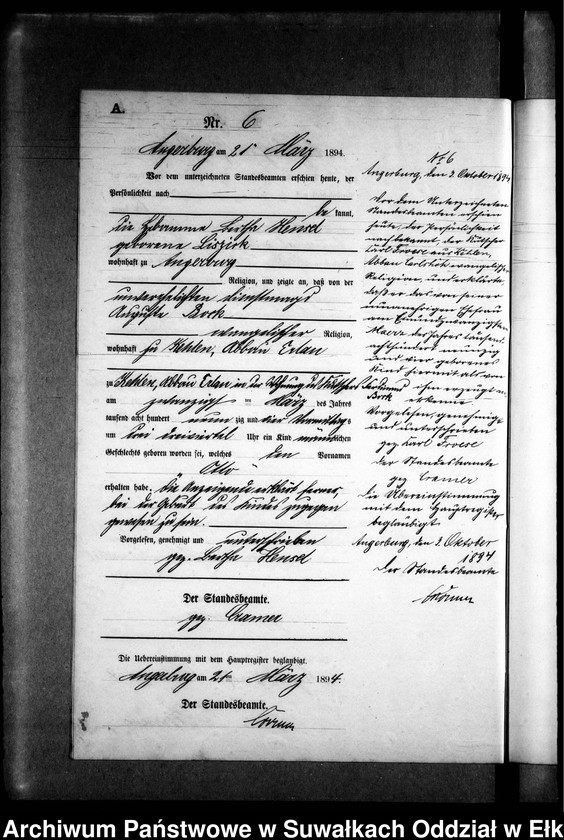 A.
Nr. 6
Angerburg am 21 März 1894.
Vor dem unterzeichneten Standesbeamten erschien heute, der
Persönlichkeit nach
be kannt,
die Hebamme Bertha Hensel
geborene
wohnhaft zu Angerburg
Religion, und zeigte an, daß von der
unverehelichten Dienstmagd
Auguste Bork
evangelischer Religion,
wohnhaft zu Kehlen, Abbau
zu Kehlen, Abbau in der Wohnung des
Bork
am zwanzigsten März des Jahres
tausend acht hundert neun zig und vier Vormittags
um drei dreiviertel Uhr ein Kind männlichen
Geschlechts geboren worden sei, welches den Vornamen
Otto
erhalten habe. Die Anzeigende erklärt ferner,
bei der Geburt des Kindes zugegen
gewesen zu sein.
Vorgelesen, genehmigt und unterschrieben
gez. Bertha Hensel
Der Standesbeamte.
gez. Cramer
Die Uebereinstimmung mit dem Hauptregister beglaubigt.
Angerburg am 21 März 1894.
Der Standesbeamte.
No 6
Angerburg, den 3. Oktober 1894
Vor dem unterzeichneten
Standesbeamten erschien
heute, der Persönlichkeit
nach bekannt, der
Karl Froese aus Kehlen,
Abbau evangelischer
Religion, und erklärte
daß er das von seiner
nunmehrigen Ehefrau
am
März des Jahres tausend
achthundert neunzig
und vier geborene
Kind hiermit als von
ihm erzeugt
erkenne
Vorgelesen, genehmigt
und unterschrieben
gez Karl Froese
Der Standesbeamte
gez Cramer
Die Übereinstimmung
mit dem Hauptregister
beglaubigt
Angerburg, den 3. Oktober
1894
Der Standesbeamte
Archiwum Państwowe w Suwałkach Oddział w Ełk